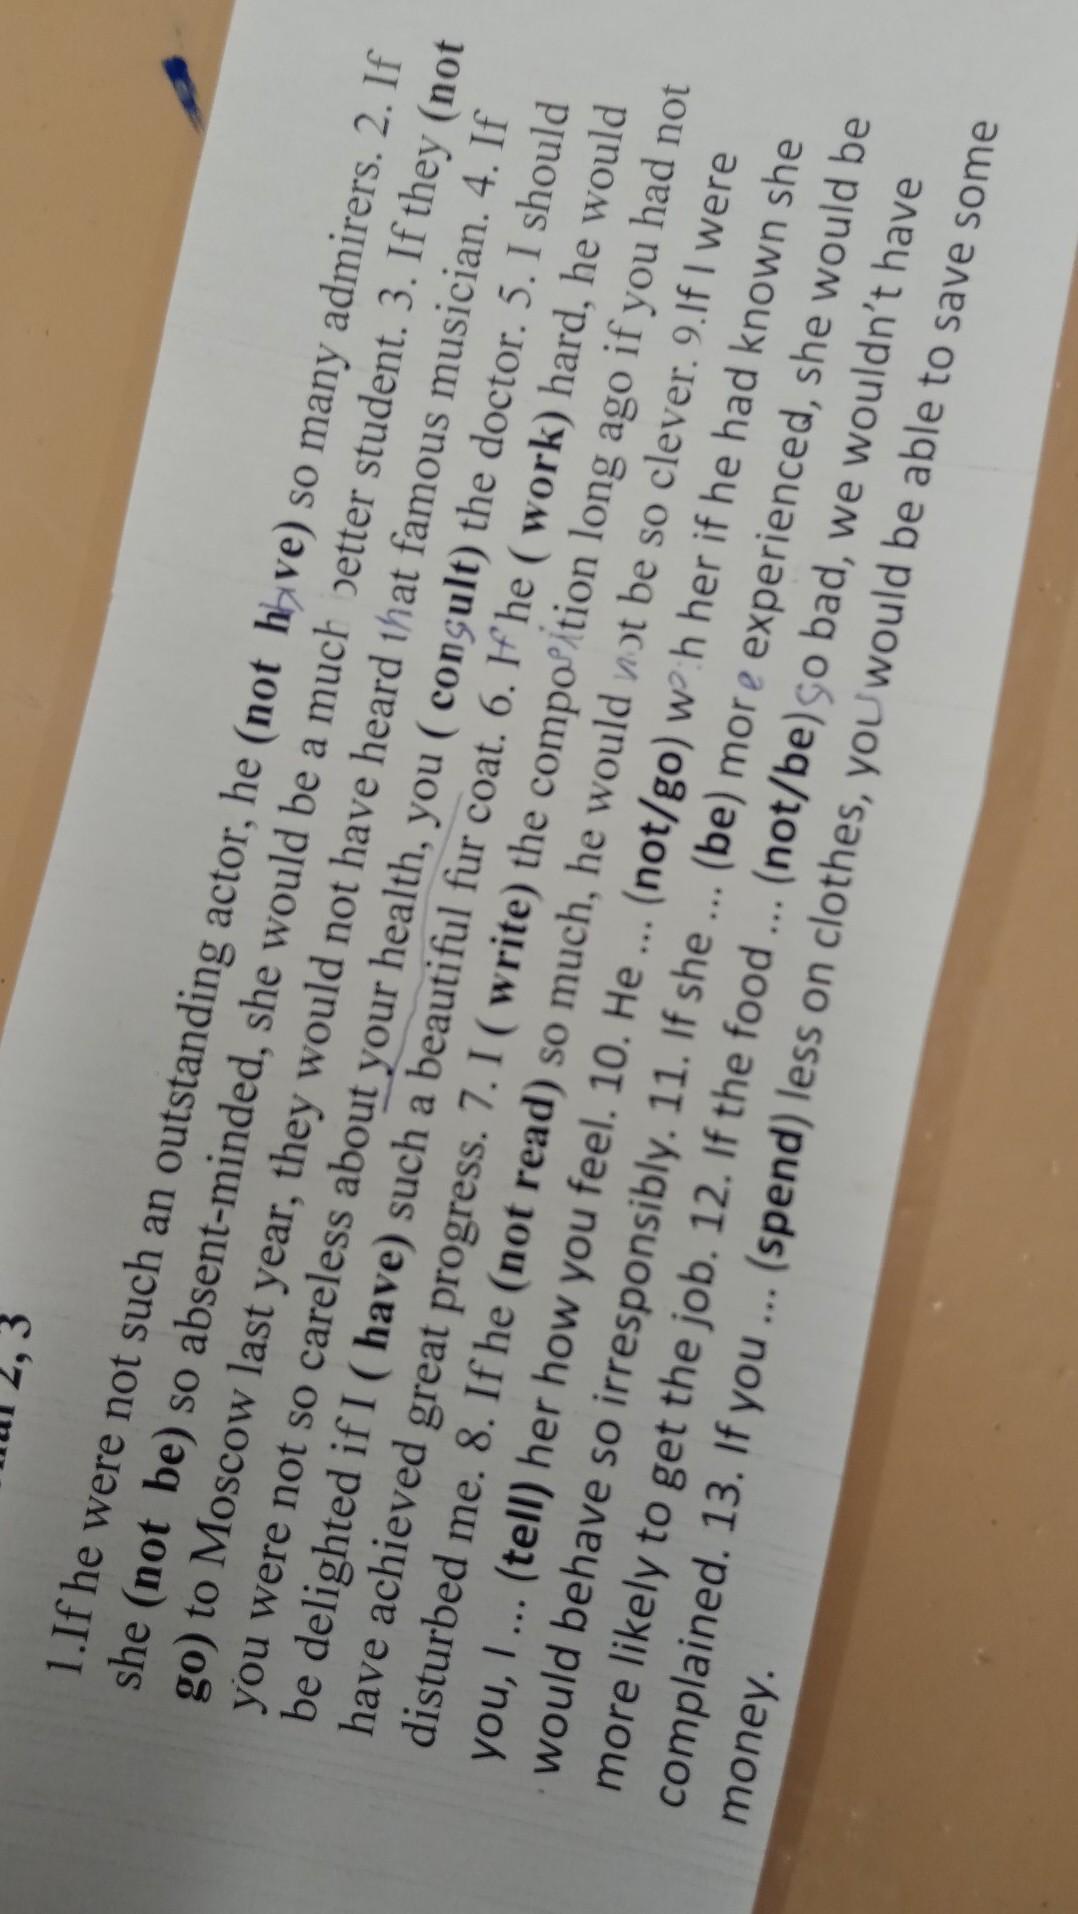 2, 3
1.If he were not such an outstanding actor, he (not have) so many admirers. 2. If
she (not be) so absent-minded, she would be a much better student. 3. If they (not
go) to Moscow last year, they would not have heard that famous musician. 4. If
you were not so careless about your health, you ( consult) the doctor. 5. I should
be delighted if I ( have) such a beautiful fur coat. 6. If he ( work) hard, he would
have achieved great progress. 7. I ( write) the composition long ago if you had not
disturbed me. 8. If he (not read) so much, he would not be so clever. 9.If I were
you, I ... (tell) her how you feel. 10. He ... (not/go) with her if he had known she
would behave so irresponsibly. 11. If she ... (be) more experienced, she would be
more likely to get the job. 12. If the food ... (not/be) so bad, we wouldn't have
complained. 13. If you ... (spend) less on clothes, you would be able to save some
money.